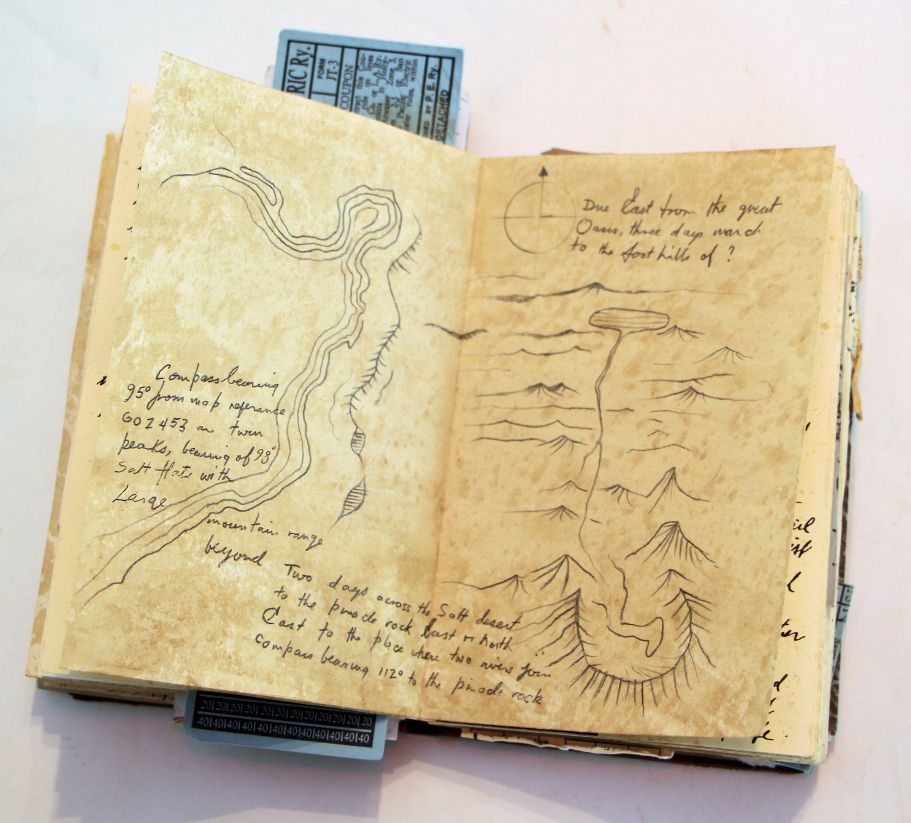 RIC Ry.
FORM
JT-3
COUPON
P. E. Ry.
DETACHED
Compass bearing
95° from map referance
601453 an twin
peaks, bearing of 98°
Salt flats with
Large
mountain range
beyond
Two days across the Salt desert
to the pinacle rock East or North
East to the place where two rivers join
compass bearing 112° to the pinacle rock
Due East from the great
Oasis, three days march
to the foothills of ?
20|20|20|20|20|20|20|20|20|20|20|20
40|40|40|40|40|40|40|40|40|40|40|40